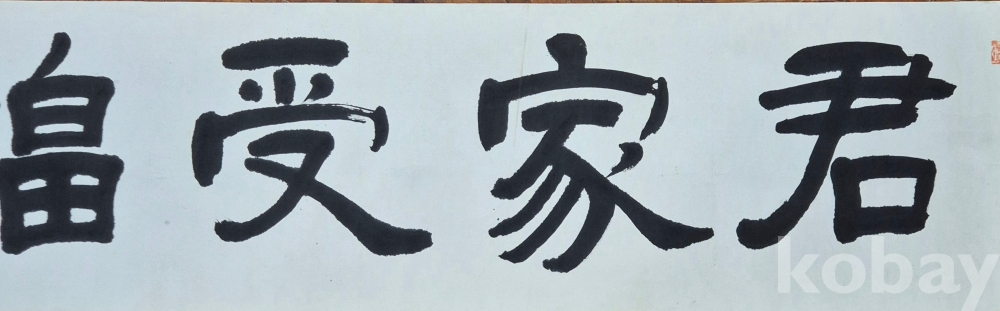 君家受
kobay